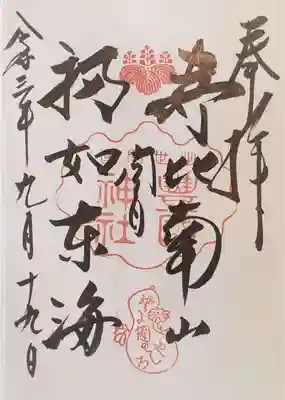 奉拝
寿比南山
豐國
神社
福如东海
令和三年九月十九日